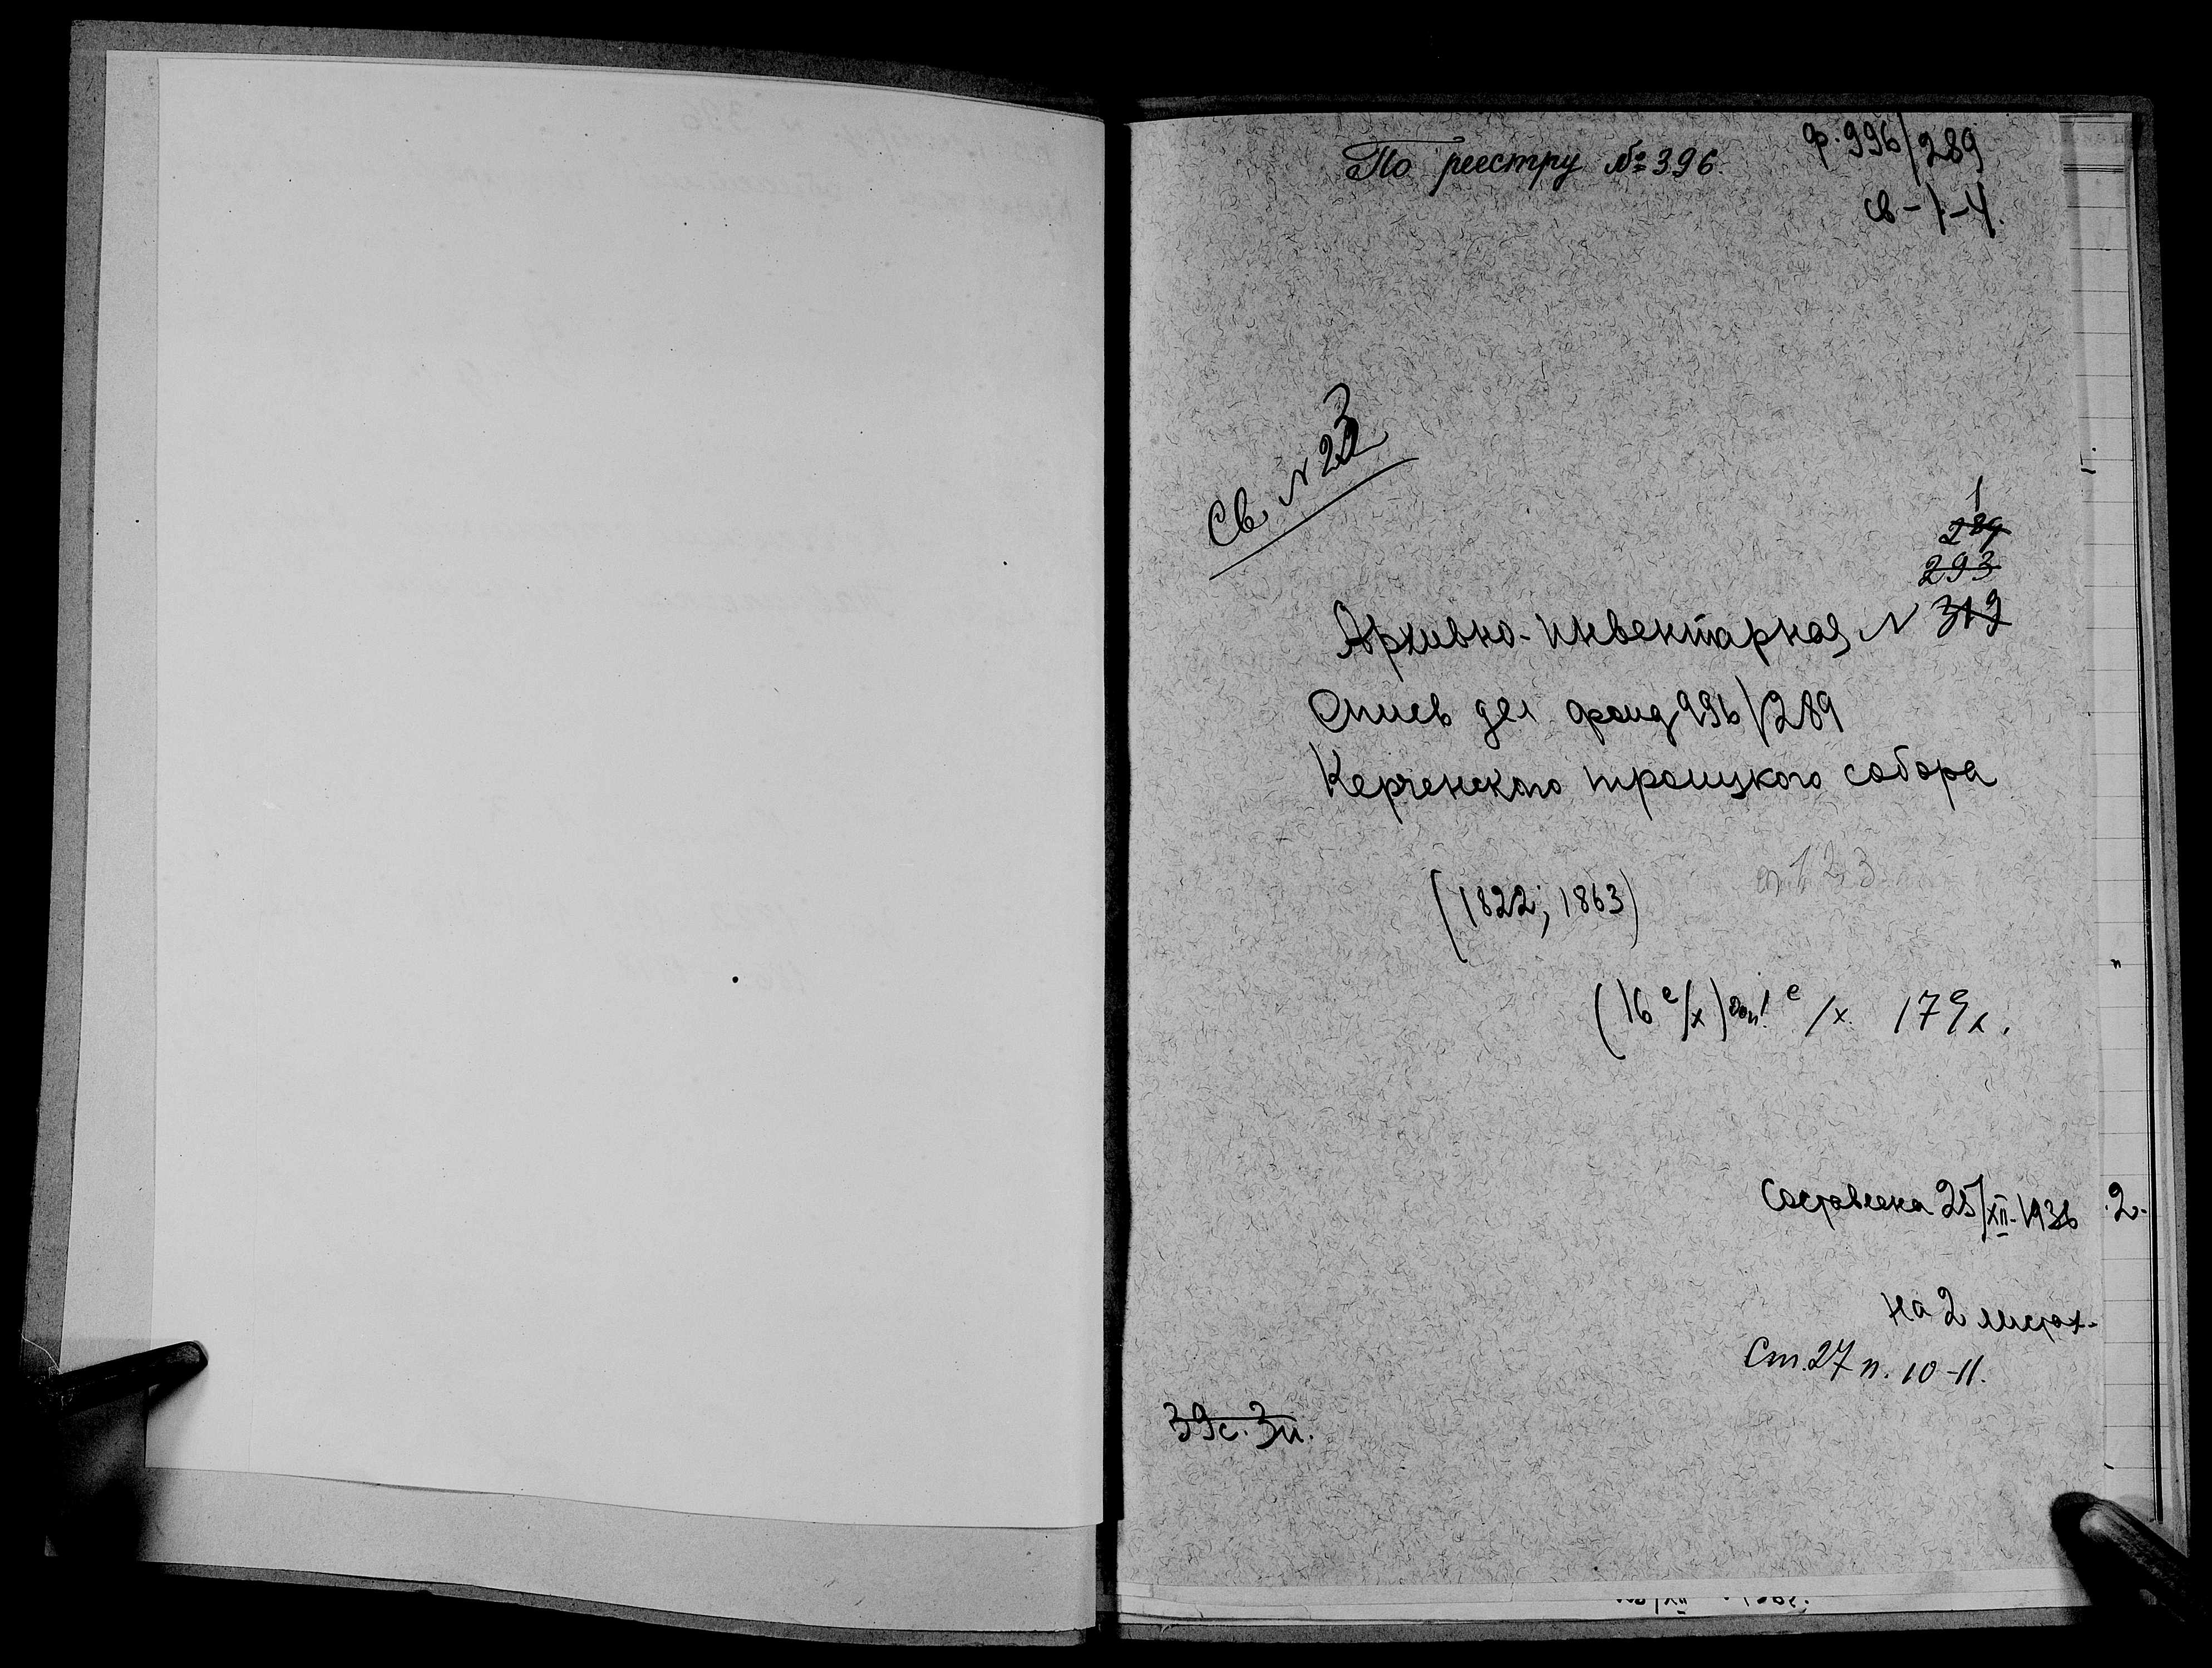 По реестру №396.
ф.996/289
св-1-4.
Св. N 23
1
289
293
Архивно-инвентарная N 319
Опись дел фонд 996/289
Керченского троицкого собора
(1822; 1863)
(16 е/х) доп. 1 е/х. 179л.
Составлена 25/XII-1936
2.
на 2 листах.
Ст.27 п.10-11.
39с. 3п.